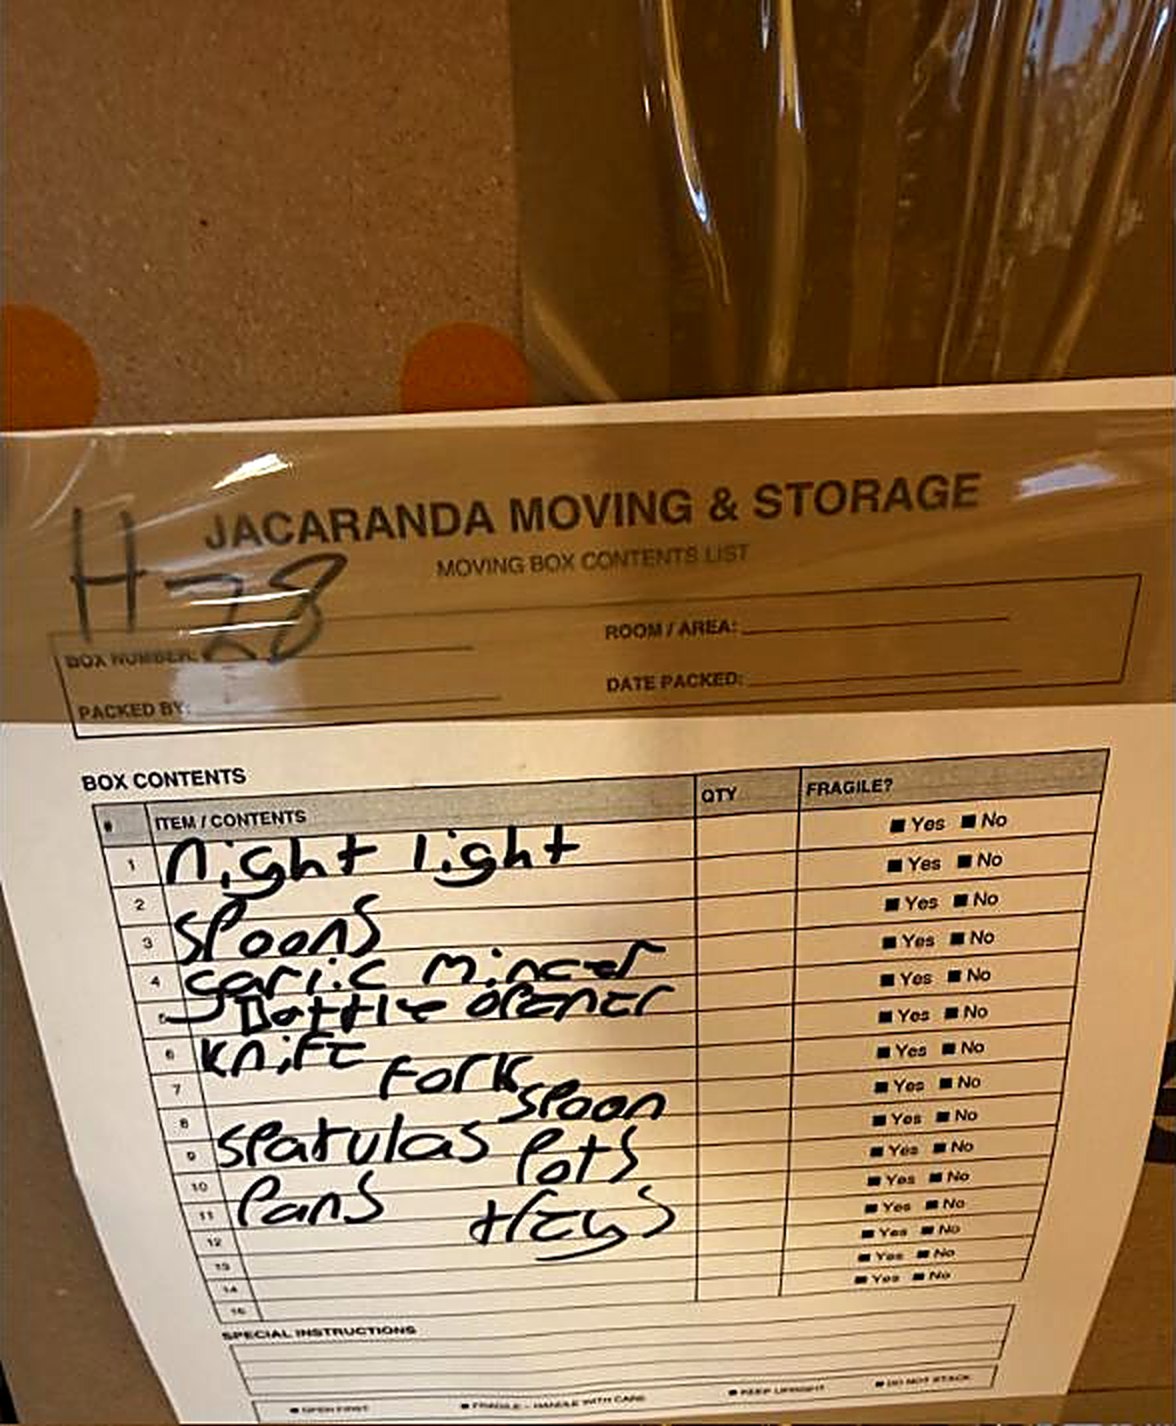 JACARANDA MOVING & STORAGE
MOVING BOX CONTENTS LIST
H-28
BOX NUMBER:
ROOM / AREA:
PACKED BY:
DATE PACKED:
BOX CONTENTS
# ITEM / CONTENTS QTY FRAGILE?
Yes No
1 night light Yes No
2 Yes No
3 spoons Yes No
4 garlic mincer Yes No
5 Bottle opener Yes No
6 knife Yes No
7 fork Yes No
8 spoon Yes No
9 spatulas pots Yes No
10 Yes No
11 pans trays Yes No
12 Yes No
13 Yes No
14 Yes No
15
SPECIAL INSTRUCTIONS
OPEN FIRST FRAGILE - HANDLE WITH CARE KEEP UPRIGHT DO NOT STACK